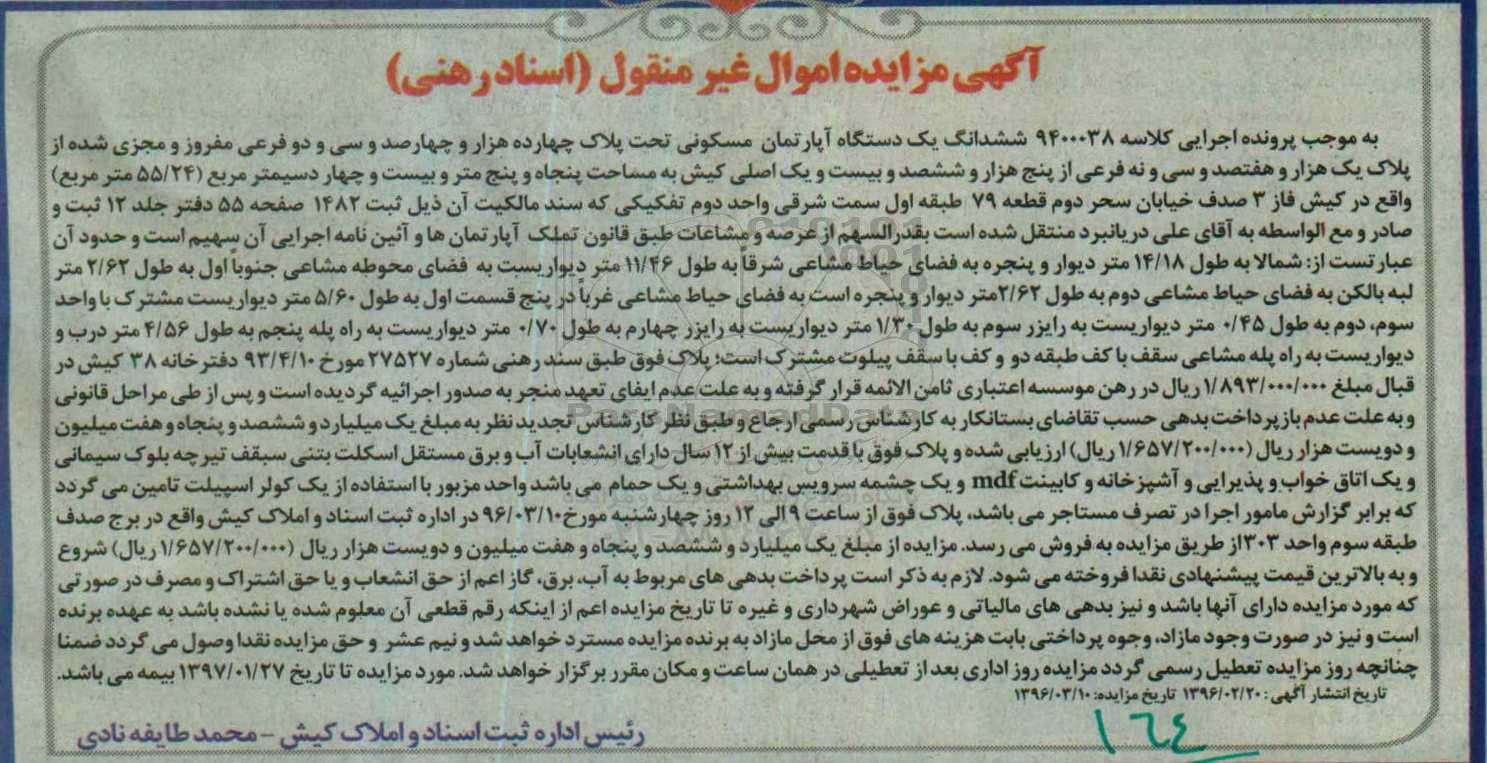 آگهی مزایده اموال غیر منقول (اسناد رهنی)
به موجب پرونده اجرایی کلاسه ۹۴۰۰۰۳۸ ششدانگ یک دستگاه آپارتمان مسکونی تحت پلاک چهارده هزار و چهارصد و سی و دو فرعی مفروز و مجزی شده از
پلاک یک هزار و هفتصد و سی و نه فرعی از پنج هزار و ششصد و بیست و یک اصلی کیش به مساحت پنجاه و پنج متر و بیست و چهار دسیمتر مربع (۵۵/۲۴ متر مربع)
واقع در کیش فاز ۳ صدف خیابان سحر دوم قطعه ۷۹ طبقه اول سمت شرقی واحد دوم تفکیکی که سند مالکیت آن ذیل ثبت ۱۴۸۲ صفحه ۵۵ دفتر جلد ۱۲ ثبت و
صادر و مع الواسطه به آقای علی دریانبرد منتقل شده است بقدرالسهم از عرصه و مشاعات طبق قانون تملک آپارتمان ها و آئین نامه اجرایی آن سهیم است و حدود آن
عبارتست از: شمالا به طول ۱۴/۱۸ متر دیوار و پنجره به فضای حیاط مشاعی شرقاً به طول ۱۱/۴۶ متر دیواریست به فضای محوطه مشاعی جنوباً اول به طول ۲/۶۲ متر
لبه بالکن به فضای حیاط مشاعی دوم به طول ۲/۶۲متر دیوار و پنجره است به فضای حیاط مشاعی غرباً در پنج قسمت اول به طول ۵/۶۰ متر دیواریست مشترک با واحد
سوم، دوم به طول ۰/۴۵ متر دیواریست به رایزر سوم به طول ۱/۳۰ متر دیواریست به رایزر چهارم به طول ۰/۷۰ متر دیواریست به راه پله پنجم به طول ۴/۵۶ متر درب و
دیواریست به راه پله مشاعی سقف با کف طبقه دو و کف با سقف پیلوت مشترک است؛ پلاک فوق طبق سند رهنی شماره ۲۷۵۲۷ مورخ ۹۳/۴/۱۰ دفترخانه ۳۸ کیش در
قبال مبلغ ۱/۸۹۳/۰۰۰/۰۰۰ ریال در رهن موسسه اعتباری ثامن الائمه قرار گرفته و به علت عدم ایفای تعهد منجر به صدور اجرائیه گردیده است و پس از طی مراحل قانونی
و به علت عدم بازپرداخت بدهی حسب تقاضای بستانکار به کارشناس رسمی ارجاع و طبق نظر کارشناس تجدید نظر به مبلغ یک میلیارد و ششصد و پنجاه و هفت میلیون
و دویست هزار ریال (۱/۶۵۷/۲۰۰/۰۰۰ ریال) ارزیابی شده و پلاک فوق با قدمت بیش از ۱۲ سال دارای انشعابات آب و برق مستقل اسکلت بتنی سبقف تیرچه بلوک سیمانی
و یک اتاق خواب و پذیرایی و آشپزخانه و کابینت mdf و یک چشمه سرویس بهداشتی و یک حمام می باشد واحد مزبور با استفاده از یک کولر اسپیلت تامین می گردد
که برابر گزارش مامور اجرا در تصرف مستاجر می باشد، پلاک فوق از ساعت ۹ الی ۱۲ روز چهارشنبه مورخ ۹۶/۰۳/۱۰ در اداره ثبت اسناد و املاک کیش واقع در برج صدف
طبقه سوم واحد ۳۰۳از طریق مزایده به فروش می رسد. مزایده از مبلغ یک میلیارد و ششصد و پنجاه و هفت میلیون و دویست هزار ریال (۱/۶۵۷/۲۰۰/۰۰۰ ریال) شروع
و به بالاترین قیمت پیشنهادی نقدا فروخته می شود. لازم به ذکر است پرداخت بدهی های مربوط به آب، برق، گاز اعم از حق انشعاب و یا حق اشتراک و مصرف در صورتی
که مورد مزایده دارای آنها باشد و نیز بدهی های مالیاتی و عوراض شهرداری و غیره تا تاریخ مزایده اعم از اینکه رقم قطعی آن معلوم شده یا نشده باشد به عهده برنده
است و نیز در صورت وجود مازاد، وجوه پرداختی بابت هزینه های فوق از محل مازاد به برنده مزایده مسترد خواهد شد و نیم عشر و حق مزایده نقدا وصول می گردد ضمنا
چنانچه روز مزایده تعطیل رسمی گردد مزایده روز اداری بعد از تعطیلی در همان ساعت و مکان مقرر برگزار خواهد شد. مورد مزایده تا تاریخ ۱۳۹۷/۰۱/۲۷ بیمه می باشد.
تاریخ انتشار آگهی: ۱۳۹۶/۰۲/۲۰ تاریخ مزایده: ۱۳۹۶/۰۳/۱۰
رئیس اداره ثبت اسناد و املاک کیش - محمد طایفه نادی
۱۶٤
ParsNamadData